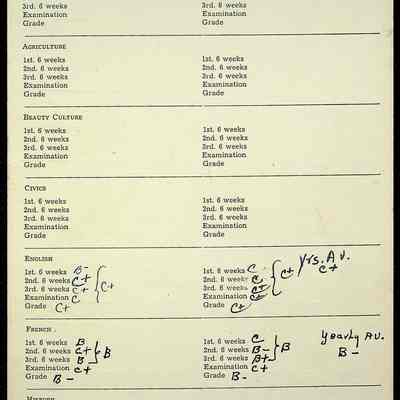 3rd. 6 weeks 3rd. 6 weeks
Examination Examination
Grade Grade
AGRICULTURE
1st. 6 weeks 1st. 6 weeks
2nd. 6 weeks 2nd. 6 weeks
3rd. 6 weeks 3rd. 6 weeks
Examination Examination
Grade Grade
BEAUTY CULTURE
1st. 6 weeks 1st. 6 weeks
2nd. 6 weeks 2nd. 6 weeks
3rd. 6 weeks 3rd. 6 weeks
Examination Examination
Grade Grade
CIVICS
1st. 6 weeks 1st. 6 weeks
2nd. 6 weeks 2nd. 6 weeks
3rd. 6 weeks 3rd. 6 weeks
Examination Examination
Grade Grade
ENGLISH Yrs. Av.
1st. 6 weeks B- 1st. 6 weeks C C+
2nd. 6 weeks C+ 2nd. 6 weeks C
3rd. 6 weeks C+ C+ 3rd. 6 weeks C+ C+
Examination C Examination C+
Grade C+ Grade
FRENCH
1st. 6 weeks B 1st. 6 weeks C Yearly Av.
2nd. 6 weeks C+ B 2nd. 6 weeks B- B B-
3rd. 6 weeks B 3rd. 6 weeks B+
Examination C+ Examination C+
Grade B- Grade B-